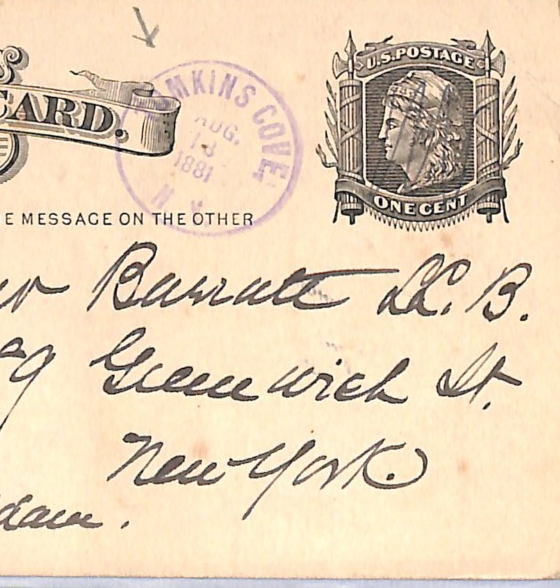 CARD.
TOMKINS COVE.
AUG.
13
1881
N.Y.
U.S. POSTAGE
ONE CENT
E MESSAGE ON THE OTHER
Barratt
B.
9 Greenwich St.
New York.